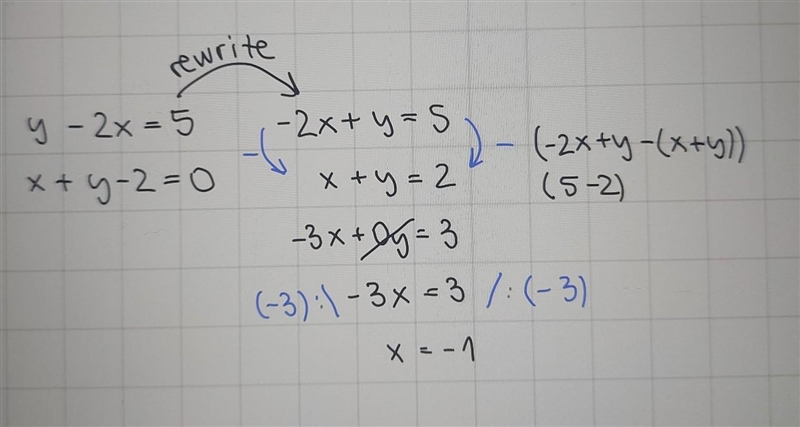 rewrite
y - 2x = 5
-2x + y = 5
- - (-2x+y-(x+y))
x + y - 2 = 0
x + y = 2
(5-2)
-3x + 0y = 3
(-3):\ -3x = 3 /:(-3)
x = -1